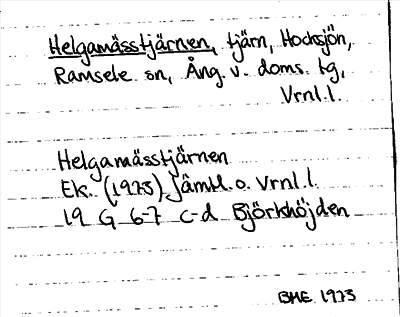 Helgamässtjärnen, tjärn, Hocksjön,
Ramsele sn, Ång. v. doms. tg,
Vrnl.l.
Helgamässtjärnen
Ek. (1973) Jämtl. o. Vrnl.l.
19 G 6-7 c-d Björkhöjden
BME 1973